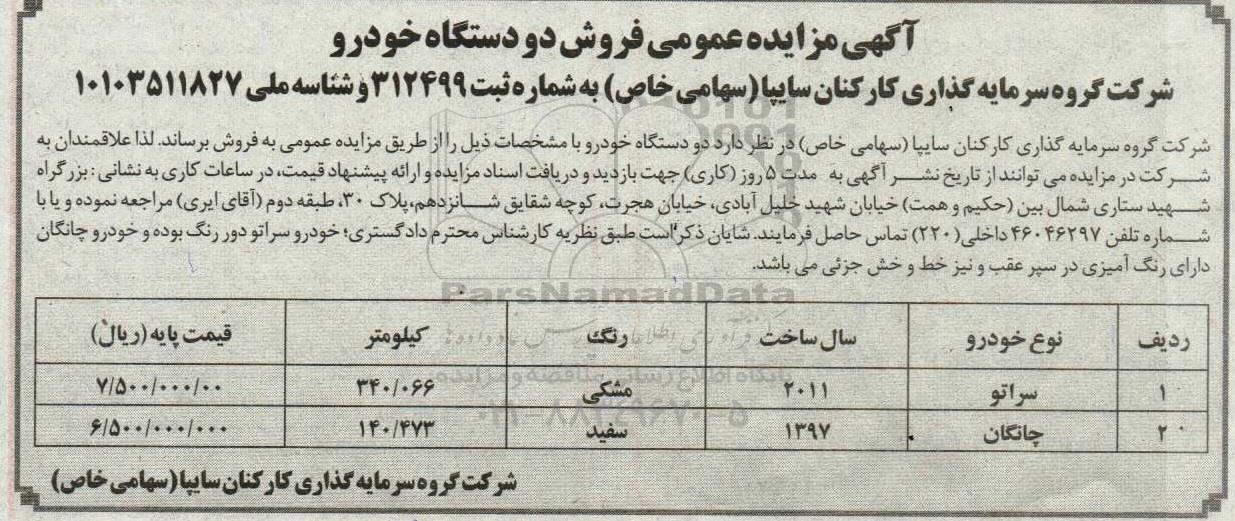 آگهی مزایده عمومی فروش دو دستگاه خودرو
شرکت گروه سرمایه گذاری کارکنان سایپا (سهامی خاص) به شماره ثبت ۳۱۲۴۹۹ و شناسه ملی ۱۰۱۰۳۵۱۱۸۲۷
شرکت گروه سرمایه گذاری کارکنان سایپا (سهامی خاص) در نظر دارد دو دستگاه خودرو با مشخصات ذیل را از طریق مزایده عمومی به فروش برساند. لذا علاقمندان به
شرکت در مزایده می توانند از تاریخ نشر آگهی به مدت ۵ روز (کاری) جهت بازدید و دریافت اسناد مزایده و ارائه پیشنهاد قیمت، در ساعات کاری به نشانی: بزرگراه
شهید ستاری شمال بین (حکیم و همت) خیابان شهید خلیل آبادی، خیابان هجرت، کوچه شقایق شانزدهم، پلاک ۳۰، طبقه دوم (آقای ایری) مراجعه نموده و یا با
شماره تلفن ۴۶۰۴۶۲۹۷ داخلی (۲۲۰) تماس حاصل فرمایند. شایان ذکر است طبق نظریه کارشناس محترم دادگستری؛ خودرو سراتو دور رنگ بوده و خودرو چانگان
دارای رنگ آمیزی در سپر عقب و نیز خط و خش جزئی می باشد.
ردیف نوع خودرو سال ساخت رنگ کیلومتر قیمت پایه (ریال)
۱ سراتو ۲۰۱۱ مشکی ۳۴۰/۰۶۶ ۷/۵۰۰/۰۰۰/۰۰
۲ چانگان ۱۳۹۷ سفید ۱۴۰/۴۷۳ ۶/۵۰۰/۰۰۰/۰۰۰
شرکت گروه سرمایه گذاری کارکنان سایپا (سهامی خاص)
ParsNamadData
پایگاه اطلاع رسانی مناقصه و مزایده
۰۲۱-۸۸۳۴۹۶۷۰-۵